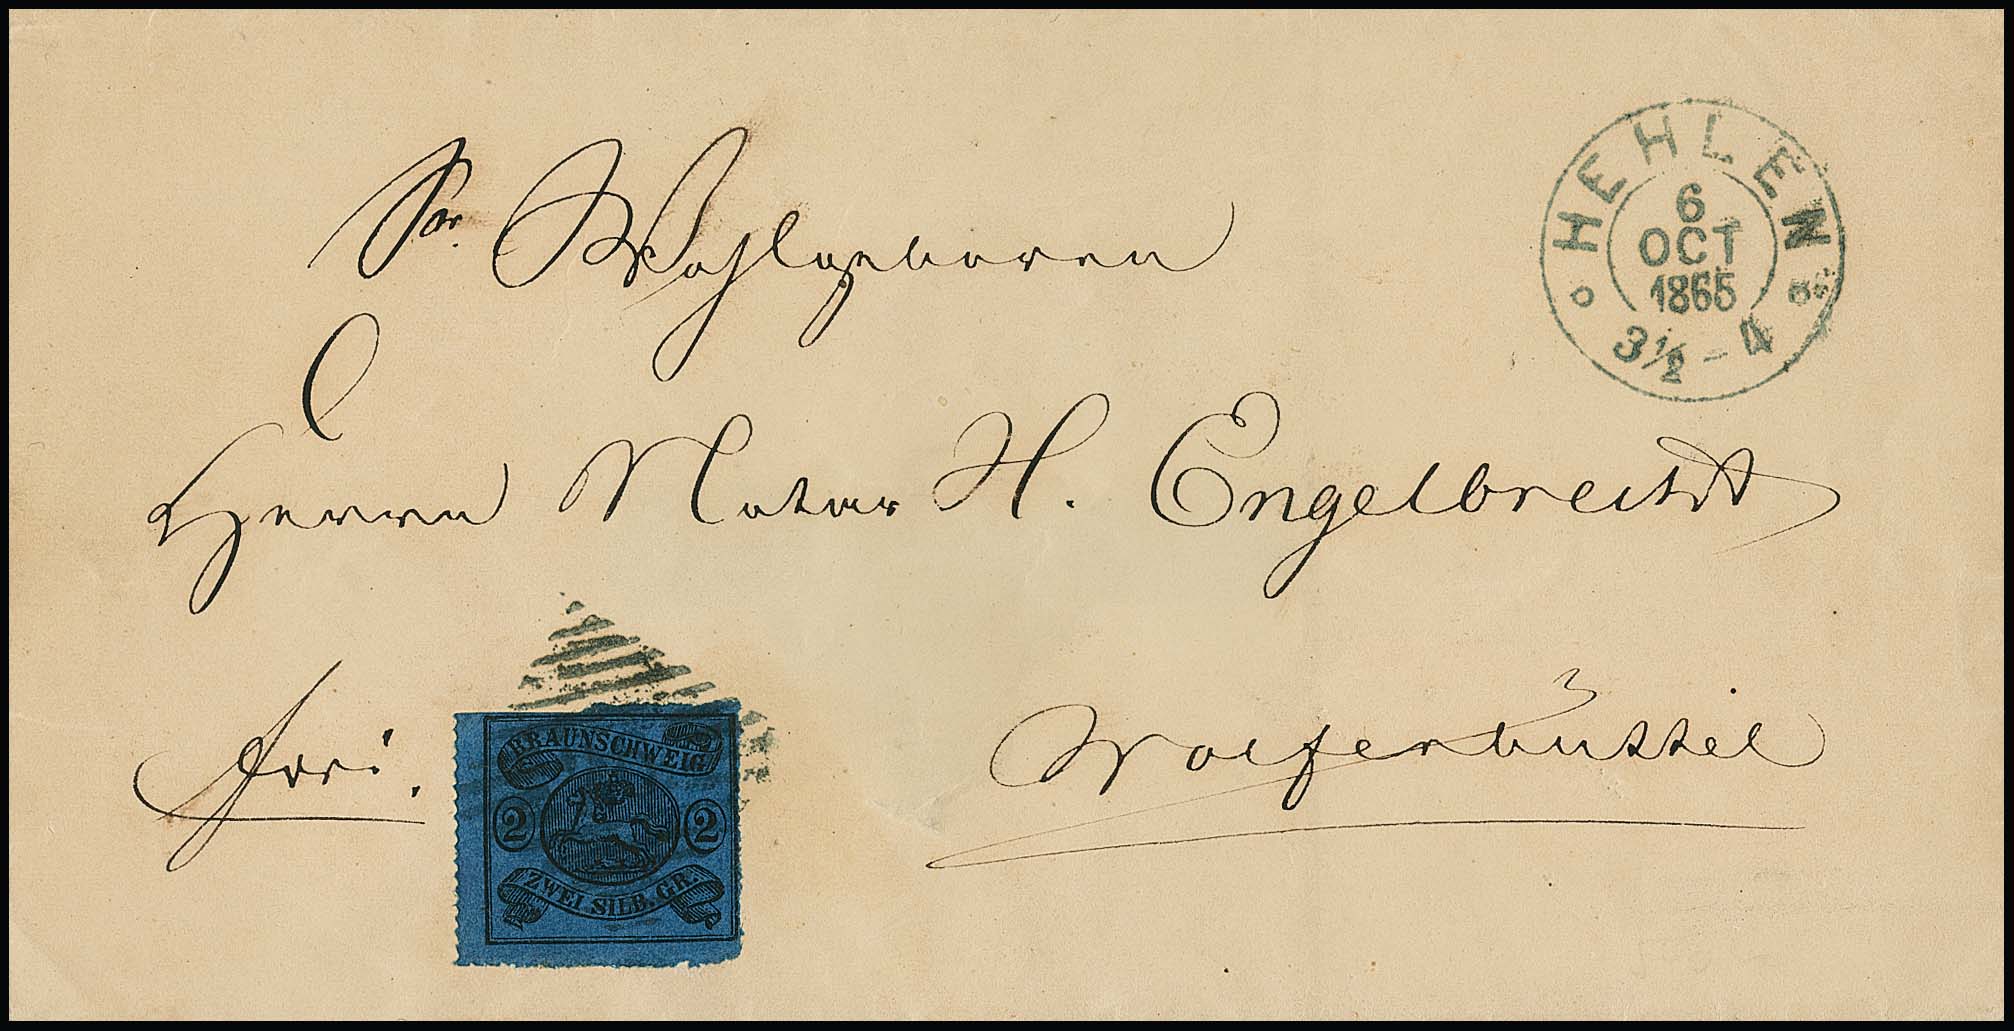 Sr. Wohlgeboren
Herrn Notar H. Engelbrecht
Wolfenbüttel
frei.
HEHLEN
6
OCT
1865
3 1/2 - 4
BRAUNSCHWEIG
2 2
ZWEI SILB. GR.